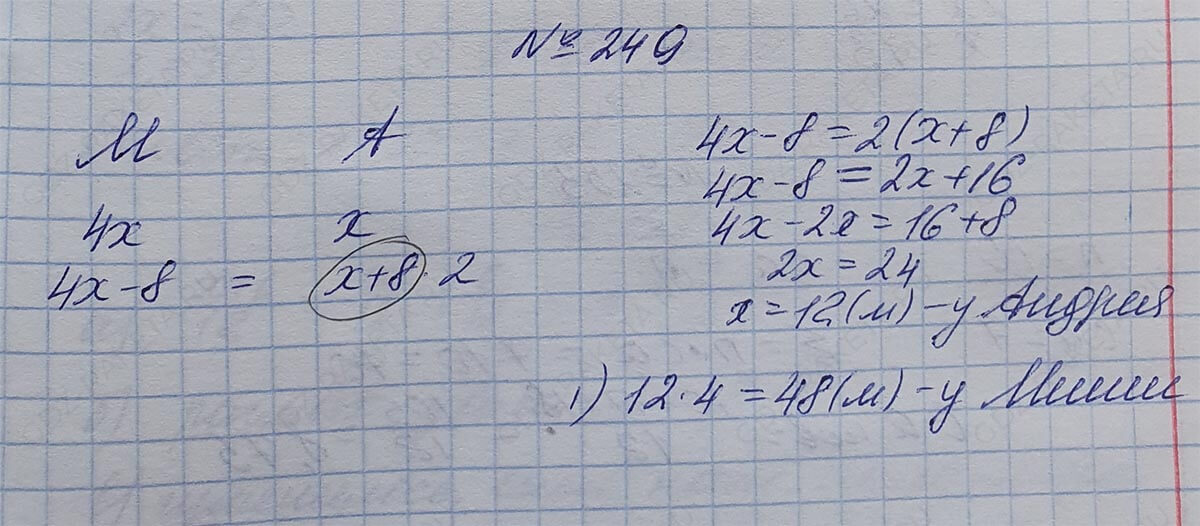 № 249
М А
4x x
4x-8 = x+8 · 2
4x-8=2(x+8)
4x-8=2x+16
4x-2x=16+8
2x=24
x=12(м)-у Андрия
1) 12·4=48(м)-у Миши